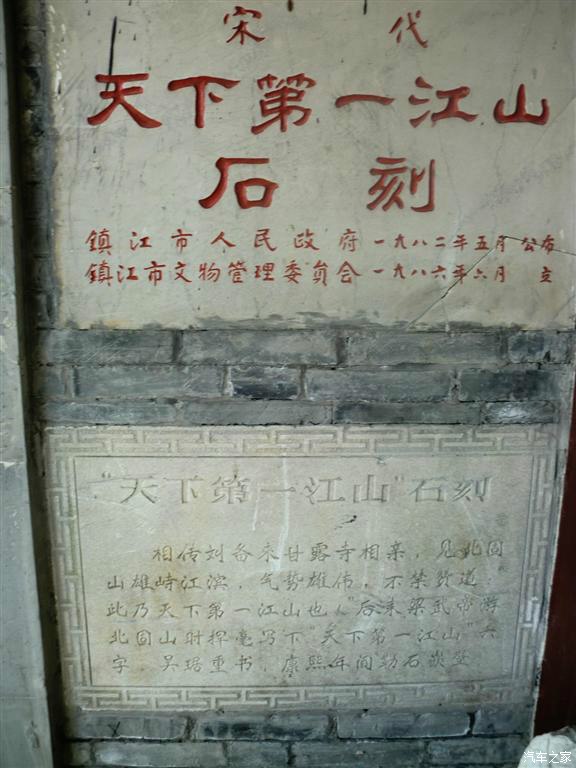 宋 代
天下第一江山
石 刻
鎮江市人民政府 一九八二年五月 公布
鎮江市文物管理委員会 一九八六年六月 立
“天下第一江山”石刻
相传刘备来甘露寺相亲，见北固
山雄峙江滨，气势雄伟，不禁赞道：“
此乃天下第一江山也！”后来梁武帝游
北固山时挥毫写下“天下第一江山”六
字，吴琚重书，康熙年间勒石嵌壁
汽车之家